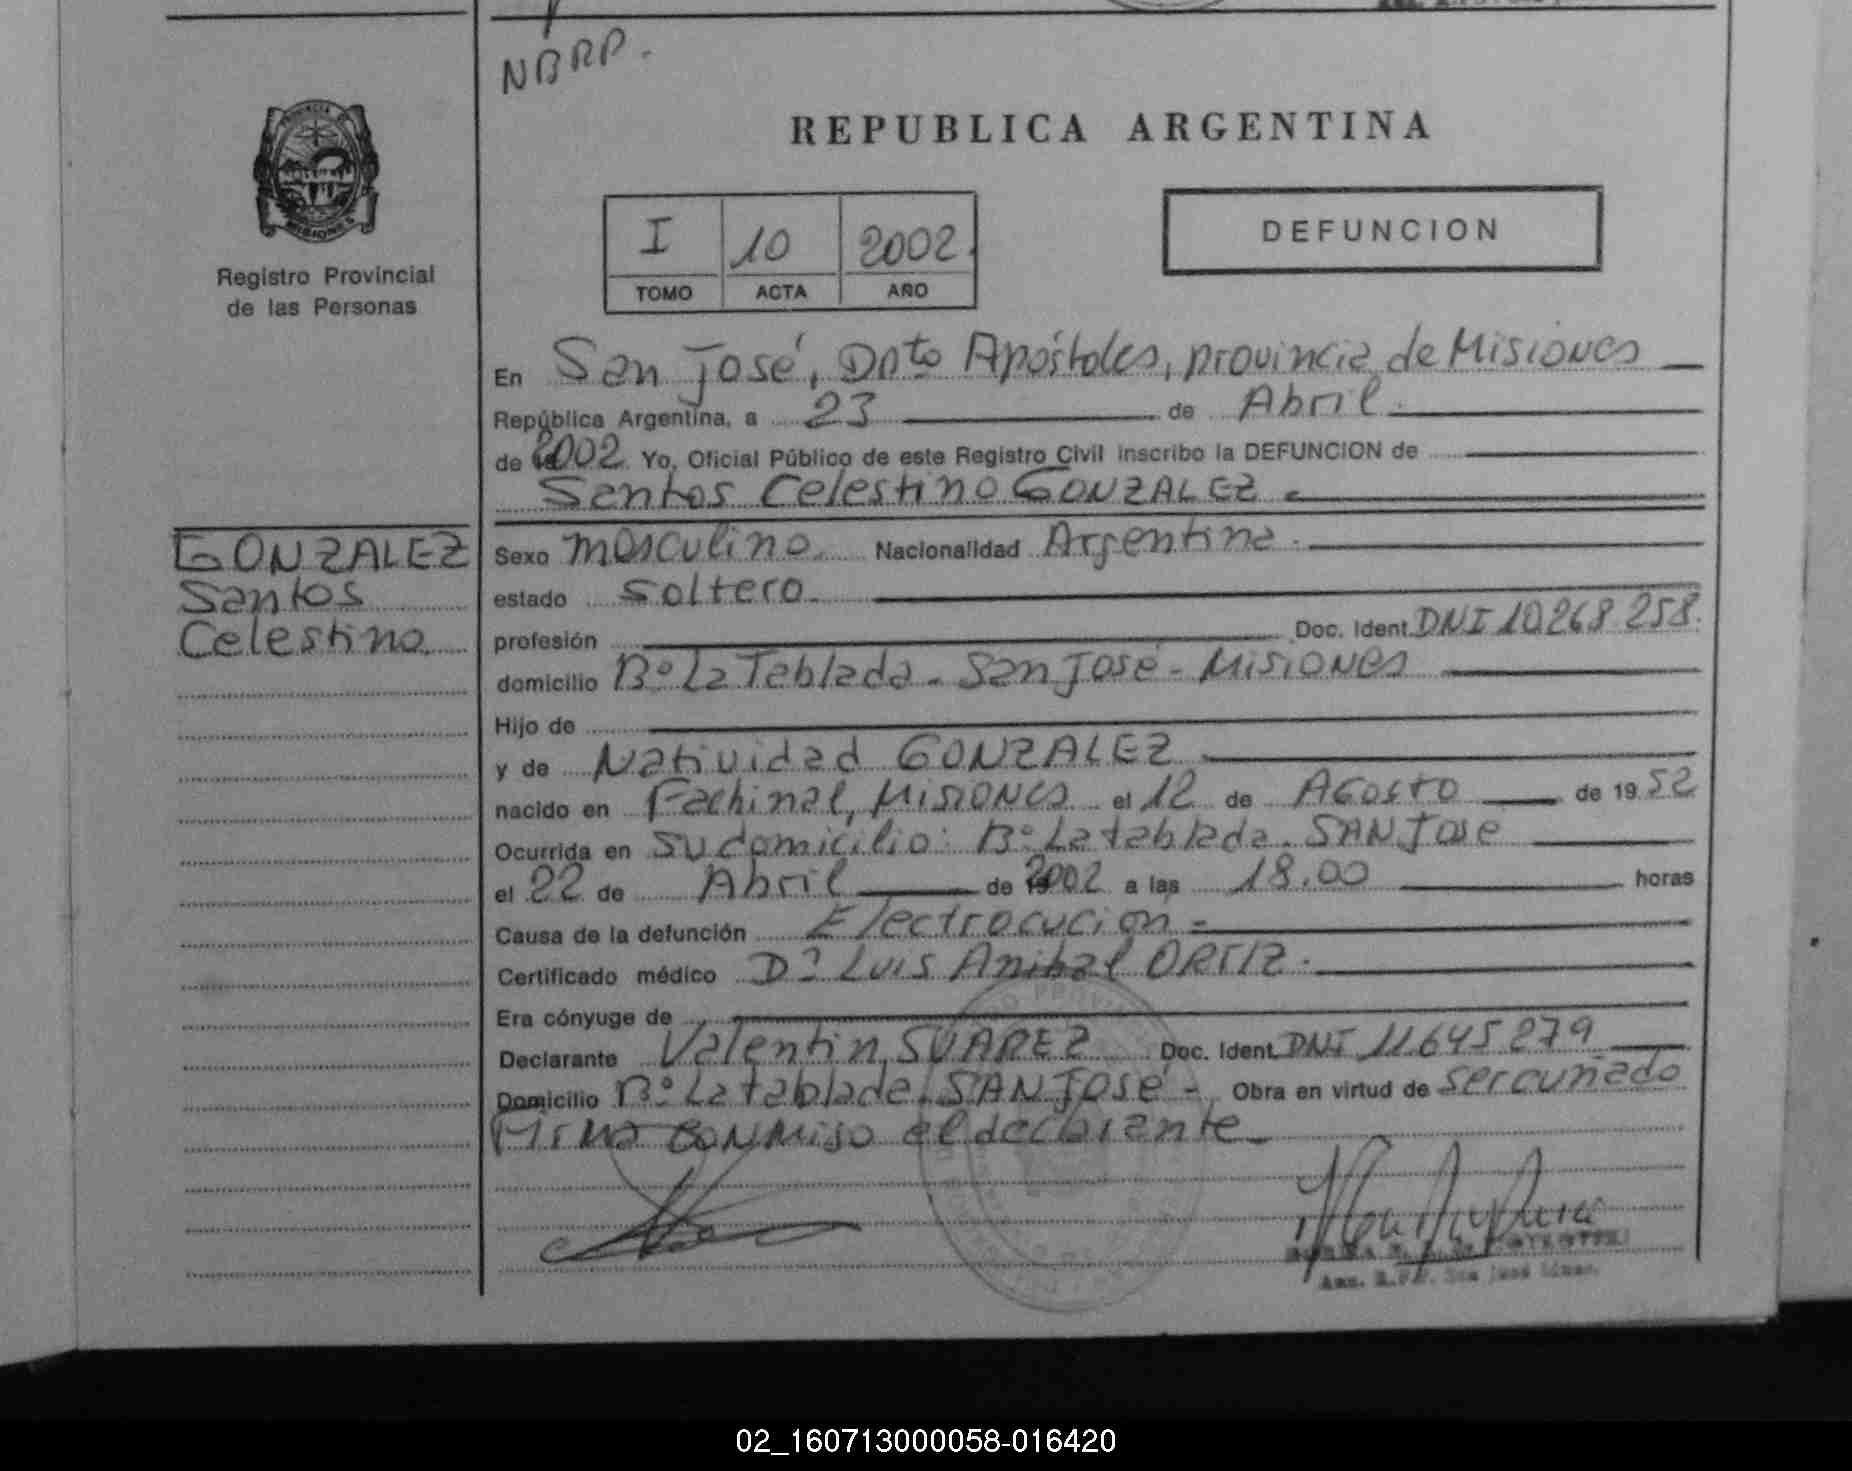 NBRP.
REPUBLICA ARGENTINA
PROVINCIA DE
MISIONES
Registro Provincial
de las Personas
I 10 2002.
TOMO ACTA AÑO
DEFUNCION
En San José, Dpto Apóstoles, provincia de Misiones
República Argentina, a 23 de Abril.
de 2002 Yo, Oficial Público de este Registro Civil inscribo la DEFUNCION de
Santos Celestino GONZALEZ
GONZALEZ
Santos
Celestino
Sexo masculino Nacionalidad Argentina.
estado soltero
profesión Doc. Ident. DNI 10.268.258.
domicilio Bº La Tablada. San José - Misiones
Hijo de
y de Natividad GONZALEZ
nacido en Fachinal, Misiones el 12 de Agosto de 1952
Ocurrida en su domicilio: Bº La tablada. SAN José
el 22 de Abril de 2002 a las 18.00 horas
Causa de la defunción Electrocución
Certificado médico Dr Luis Anibal ORTIZ.
Era cónyuge de
Declarante Valentin SUAREZ Doc. Ident. DNI 11.645.279
Domicilio Bº La tablada. SAN José - Obra en virtud de ser cuñado
Firma conmigo el declarante
02_160713000058-016420